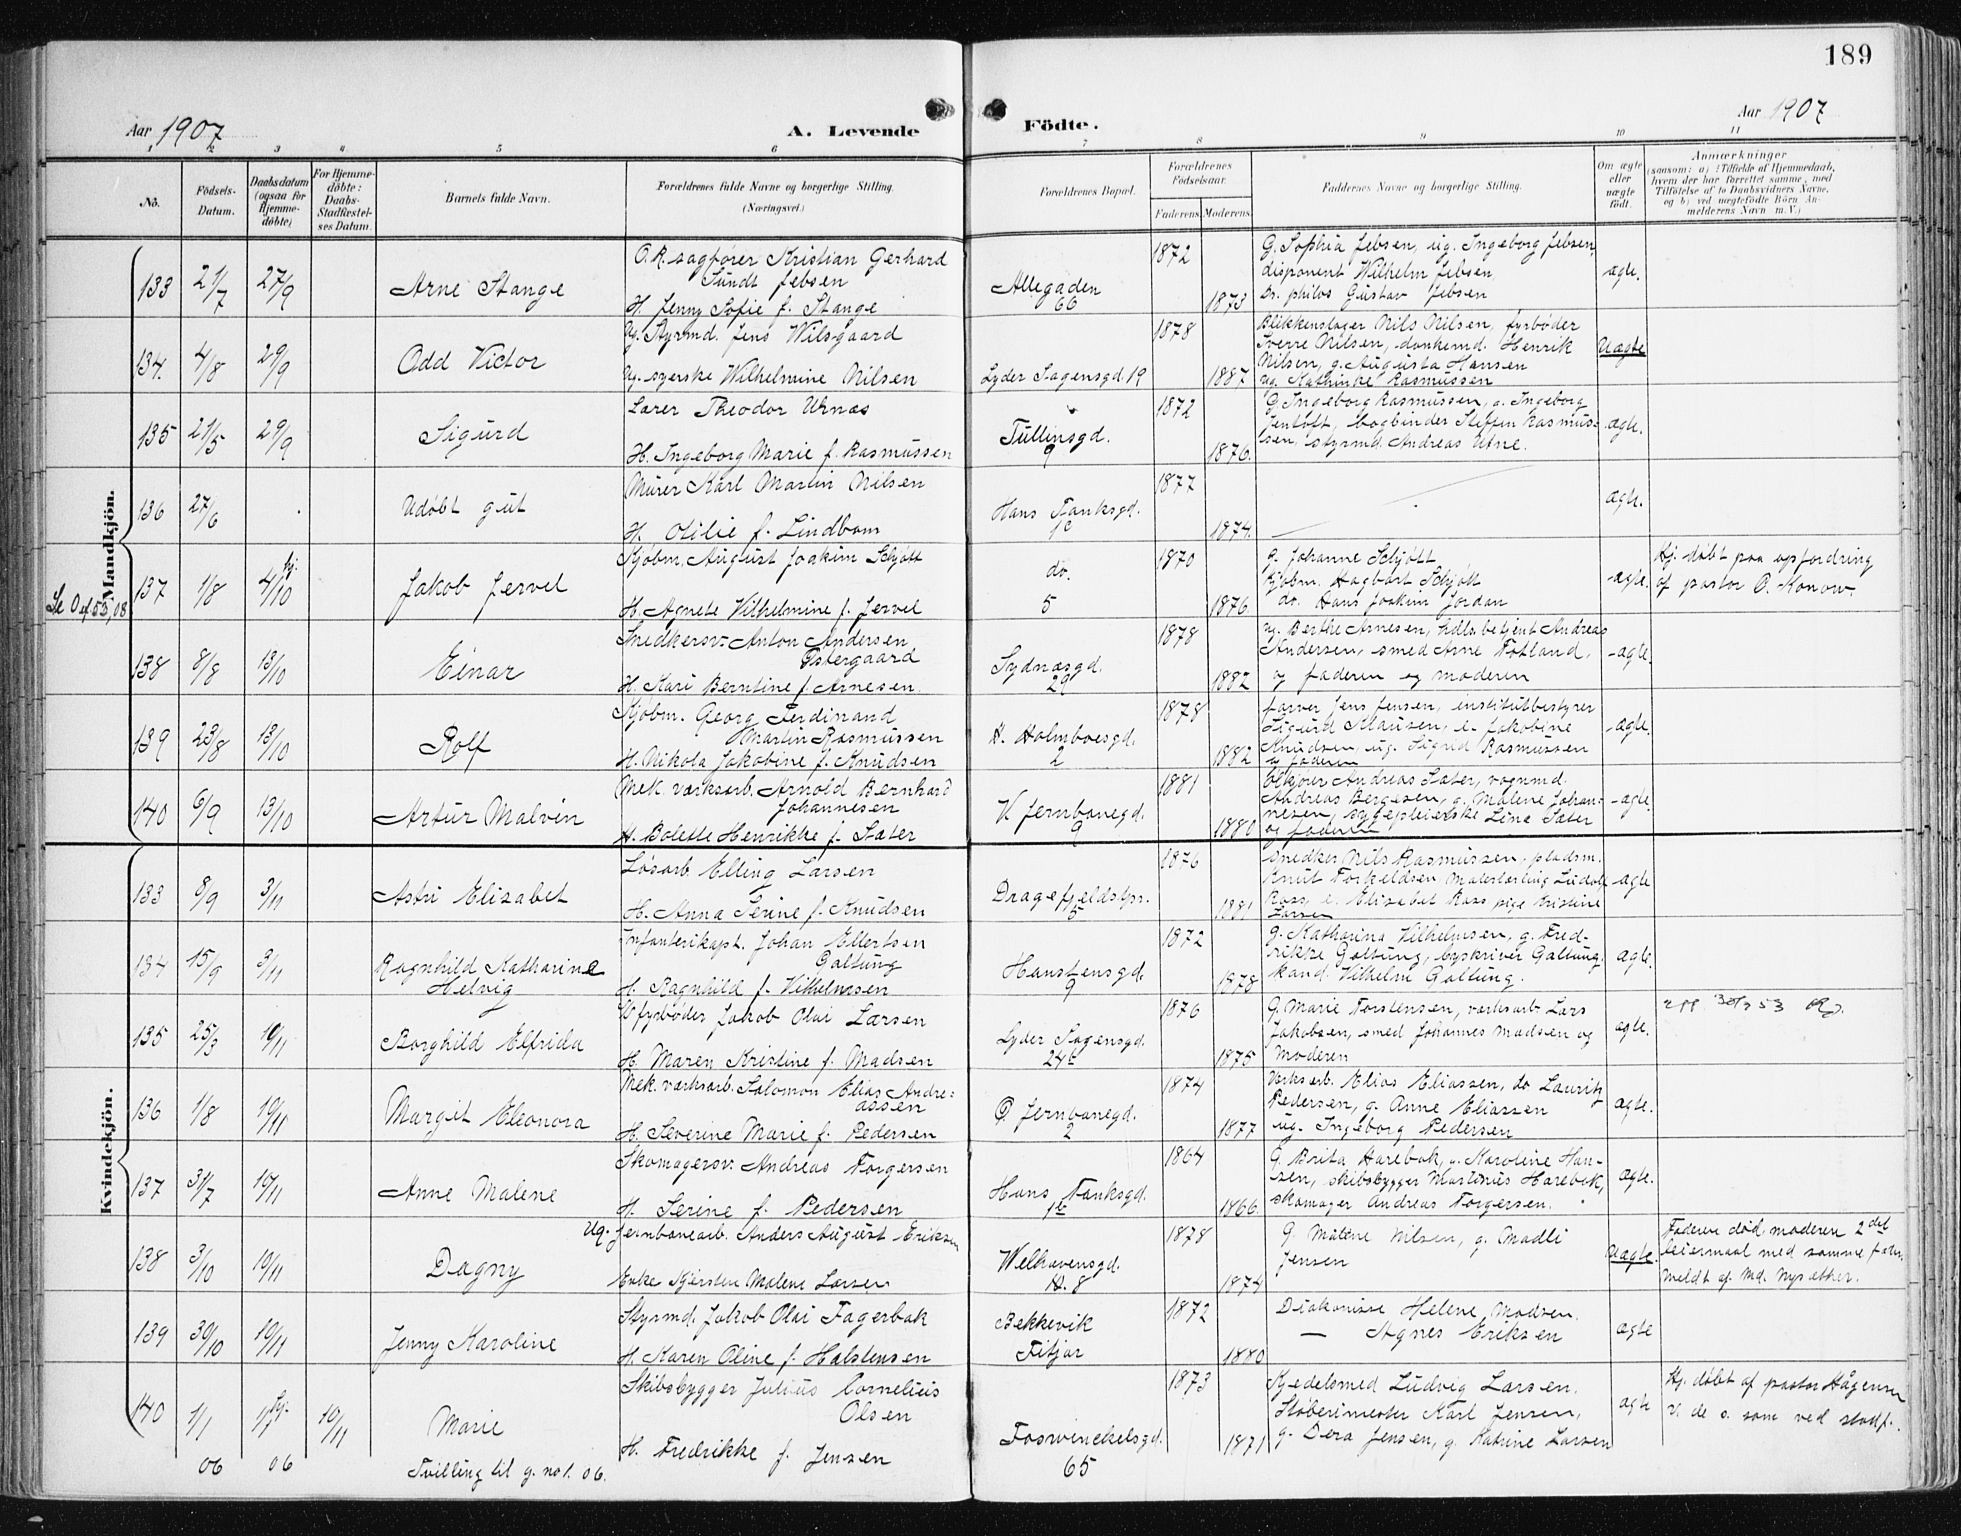 189
Aar 1907
A. Levende
Födte.
Aar 1907
1 2 3 4 5 6 7 8 9 10 11
No.
Födsels-Datum.
Daabsdatum (ogsaa for Hjemme-döbte)
For Hjemme-döbte: Daabs-Stadfæstel-ses Datum.
Barnets fulde Navn.
Forældrenes fulde Navne og borgerlige Stilling. (Næringsvei.)
Forældrenes Bopæl.
Forældrenes Födselsaar.
Faderens Moderens
Faddernes Navne og borgerlige Stilling.
Om ægte eller uægte födt.
Anmærkninger
(saasom: a) i Tilfælde af Hjemmedaab, hvem der har forrettet samme, med Tilföielse af to Daabsvidners Navne, og b) ved uægtefödte Börn An-melderens Navn m. V.)
Mandkjön.
133 21/7 27/9 Arne Stange
O.R. sagfører Kristian Gerhard
Sundt Jebsen
H. Jenny Sofie f. Stange
Allegaden
66
1872 1873
G. Sophia Jebsen, ug. Ingeborg Jebsen,
disponent Wilhelm Jebsen
Dr. philos Gustav Jebsen
ægte.
134. 4/8 29/9 Odd Victor
Ug. Styrmd. Jens Wilsgaard
Ug. syerske Wilhelmine Nilsen
Lyder Sagensgd. 19
1878 1887
Blikkenslager Nils Nilsen, fyrbøder
Sverre Nilsen, donkemd. Henrik
Nilsen, g. Augusta Hansen
ug. Kathinke Rasmussen
Uægte
135 21/5 29/9 Sigurd
Lærer Theodor Urnæs
H. Ingeborg Marie f. Rasmussen
Tullinsgd.
9
1872 1876.
G. Ingeborg Rasmussen, u. Ingeborg
Jentoft, bogbinder Steffen Rasmus-
sen, styrmd. Andreas Utne.
ægte.
136 27/6 Udøbt gut
Murer Karl Martin Nilsen
H. Otilie f. Lindbom
Hans Tanksgd.
1c
1877 1874.
ægte.
Se O af 53, 08
137 1/8 hj. 4/10 Jakob Jervel
Kjøbm. August Joakim Schjøtt
H. Agnete Vilhelmine f. Jervel
do.
5
1870 1876
g. Johanne Schjøtt
Kjøbm. Hagbart Schjøtt
do. Hans Joakim Jordan
ægte.
Hj. døbt paa opfordring
af pastor O. Konow.
138 8/8 13/10 Einar
Snedkersv. Anton Andersen
Østergaard
H. Kari Berntine f. Arnesen.
Sydnæsgd.
29
1878 1882
ug. Berthe Arnesen, hdls.betjent Andreas
Andersen, smed Arne Totland,
og faderen og moderen
ægte.
139 23/8 13/10 Rolf
Kjøbm. Georg Ferdinand
Martin Rasmussen
H. Nikola Jakobine f. Knudsen
H. Holmboesgd.
2
1878 1882
farver Jens Jensen, institutbestyrer
Sigurd Clausen, e. Jakobine
Knudsen, ug. Sigrid Rasmussen
og faderen
ægte.
140 6/9 13/10 Artur Malvin
Mek. værksarb. Arnold Bernhard
Johannesen
H. Bolette Henrikke f. Sæter
V. Jernbanegd.
9
1881 1880
Andreas Sæter, vognmd.
Andreas Bergesen, g. Malene Johan-
nesen, sygepleierske Lina Sæter
og faderen
ægte.
Kvindekjön.
133 8/9 3/11 Astri Elizabet
Løsarb. Elling Larsen
H. Anna Serine f. Knudsen
Dragefjeldstpr.
5
1876 1881
Snedker Nils Rasmussen, pladsm.
Knut Torkeldsen, Malerlærling Ludolf
Ross, e. Elizabet Ross, pige Kristine
Larsen
ægte
134 15/9 3/11 Ragnhild Katharine
Helvig
Infanterikapt. Johan Ellertsen
Galtung
H. Ragnhild f. Vilhelmsen
Hanstensgd.
9
1872 1878
g. Katharina Vilhelmsen, g. Fred-
rikke Galtung, byskriver Galtung,
kand. Vilhelm Galtung.
ægte.
135 25/3 10/11 Borghild Elfrida
fyrbøder Jakob Olai Larsen
H. Maren Kristine f. Madsen
Lyder Sagensgd.
24b
1876 1875
G. Marie Torstensen, værksarb. Lars
Jakobsen, smed Johannes Madsen og
moderen
ægte.
136 1/8 10/11 Margit Eleonora
Mek. værksarb. Salomon Elias Andre-
assen
H. Severine Marie f. Pedersen
Ø. Jernbanegd.
2
1874 1877
Verksarb. Elias Eliassen, do Lauritz
Pedersen, g. Anne Eliassen
ug. Ingeborg Pedersen
ægte.
137 31/7 10/11 Anne Malene
Skomagersv. Andreas Torgersen
H. Serine f. Pedersen
Hans Tanksgd.
1b
1864 1866.
G. Brita Harebak, u. Karoline Han-
sen, skibsbygger Martinus Harebak,
skomager Andreas Torgersen.
ægte.
138 3/10 10/11 Dagny
Ug. Jernbanearb. Anders August Eriksen
Enke Kjersten Malene Larsen
Welhavensgd.
8
1878 1874
G. Malene Nilsen, g. Madli
Jensen
Uægte.
Faderen død, moderen 2det
leiermaal med samme fader.
Meldt af Md. Nysæther.
139 30/10 10/11 Jenny Karoline
Styrmd. Jakob Olai Fagerbak
H. Karen Oline f. Halstensen
Bekkevik
Fitjar
1872 1880
Diakonisse Helene Madsen.
— Agnes Eriksen
ægte
140 1/1 hj. 1/1 10/11 Marie
06 06
Tvilling til g. no 1. 06.
Skibsbygger Julius Cornelius
Olsen
H. Fredrikke f. Jensen
Foswinckelsgd.
65
1873 1871
Kjedelsmed Ludvig Larsen.
Støberimester Karl Jensen,
g. Dera Jensen, g. Katrine Larsen
ægte
Hj. døbt af pastor Hågensen
V. de s. som ved stadf.